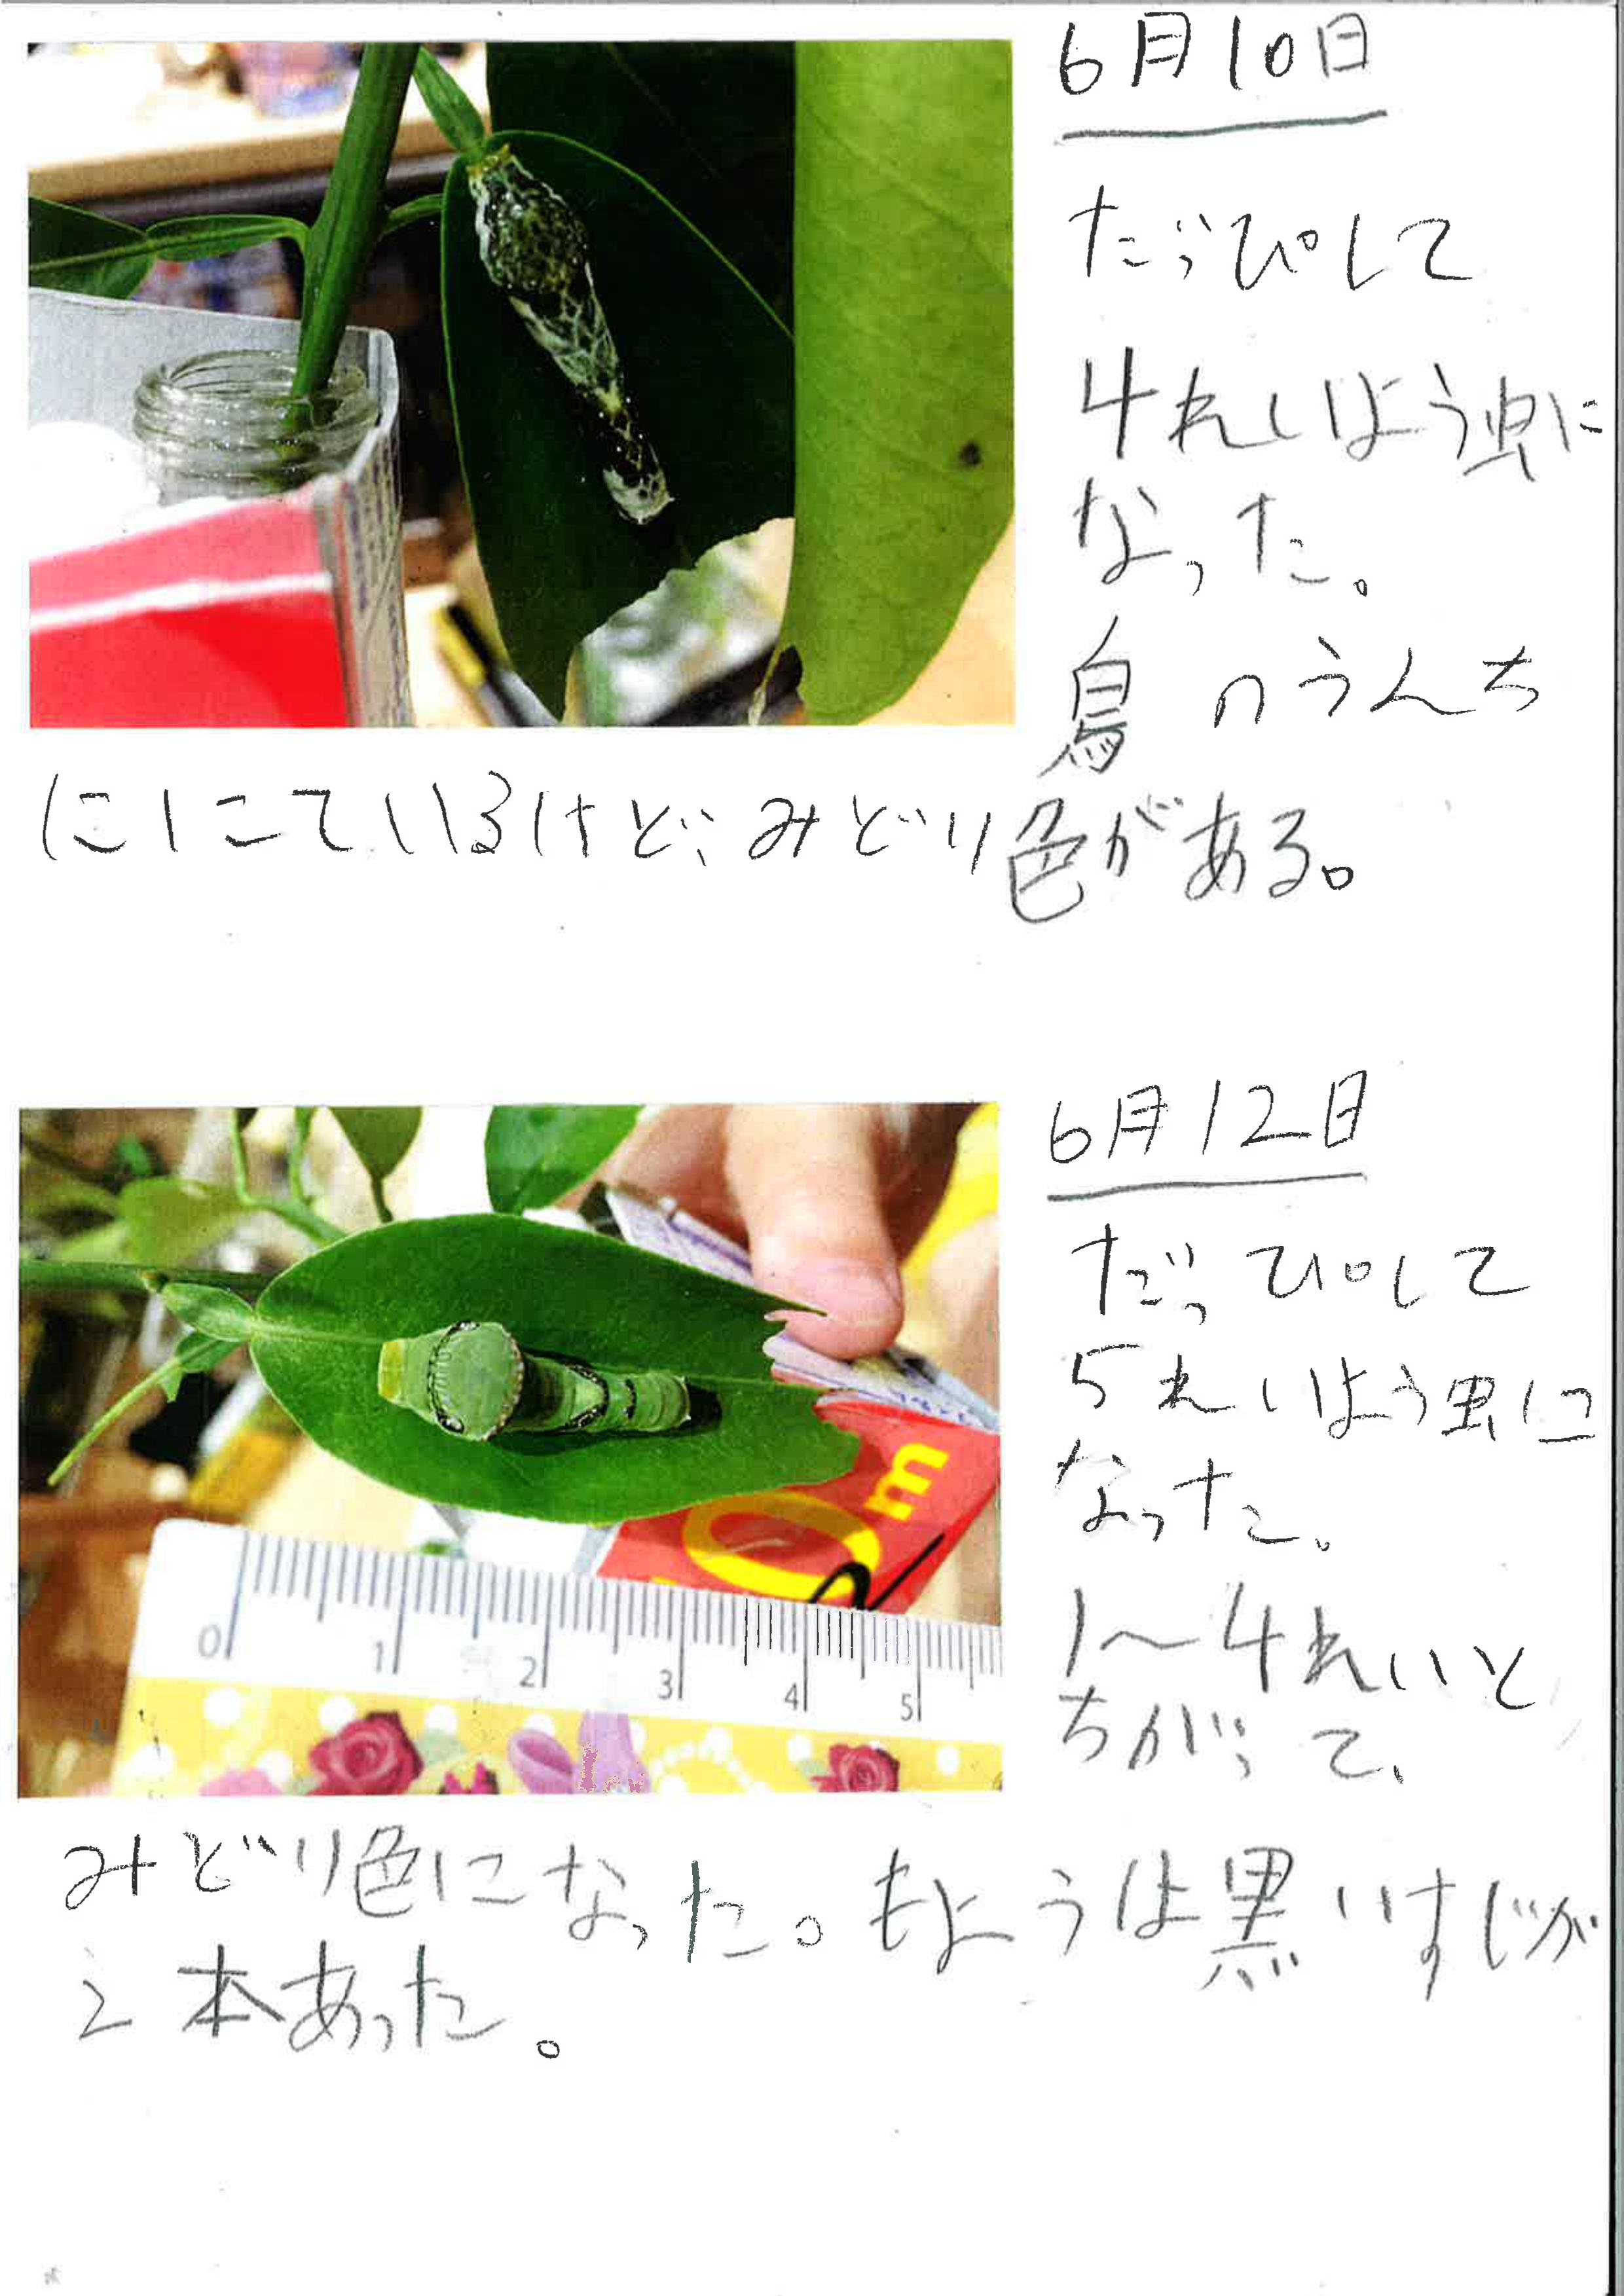 6月10日
だっぴして
4れいよう虫に
なった。
鳥のうんち
ににているけど、みどり色がある。
6月12日
だっぴして
5れいよう虫に
なった。
1～4れいと
ちがって、
みどり色になった。もようは黒いすじが
2本あった。
m
0 1 2 3 4 5